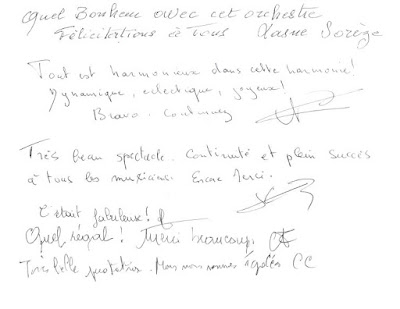 Quel Bonheur avec cet orchestre
Félicitations à Tous Sorèze
Tout est harmonieux dans cette harmonie!
Dynamique, eclectique, joyeux!
Bravo. Continuez
Très beau spectacle. Continuité et plein succès
à tous les musiciens. Encore Merci.
C'était fabuleux!
Quel régal! Merci beaucoup,
Très belle prestation. Nous nous sommes régalés CC